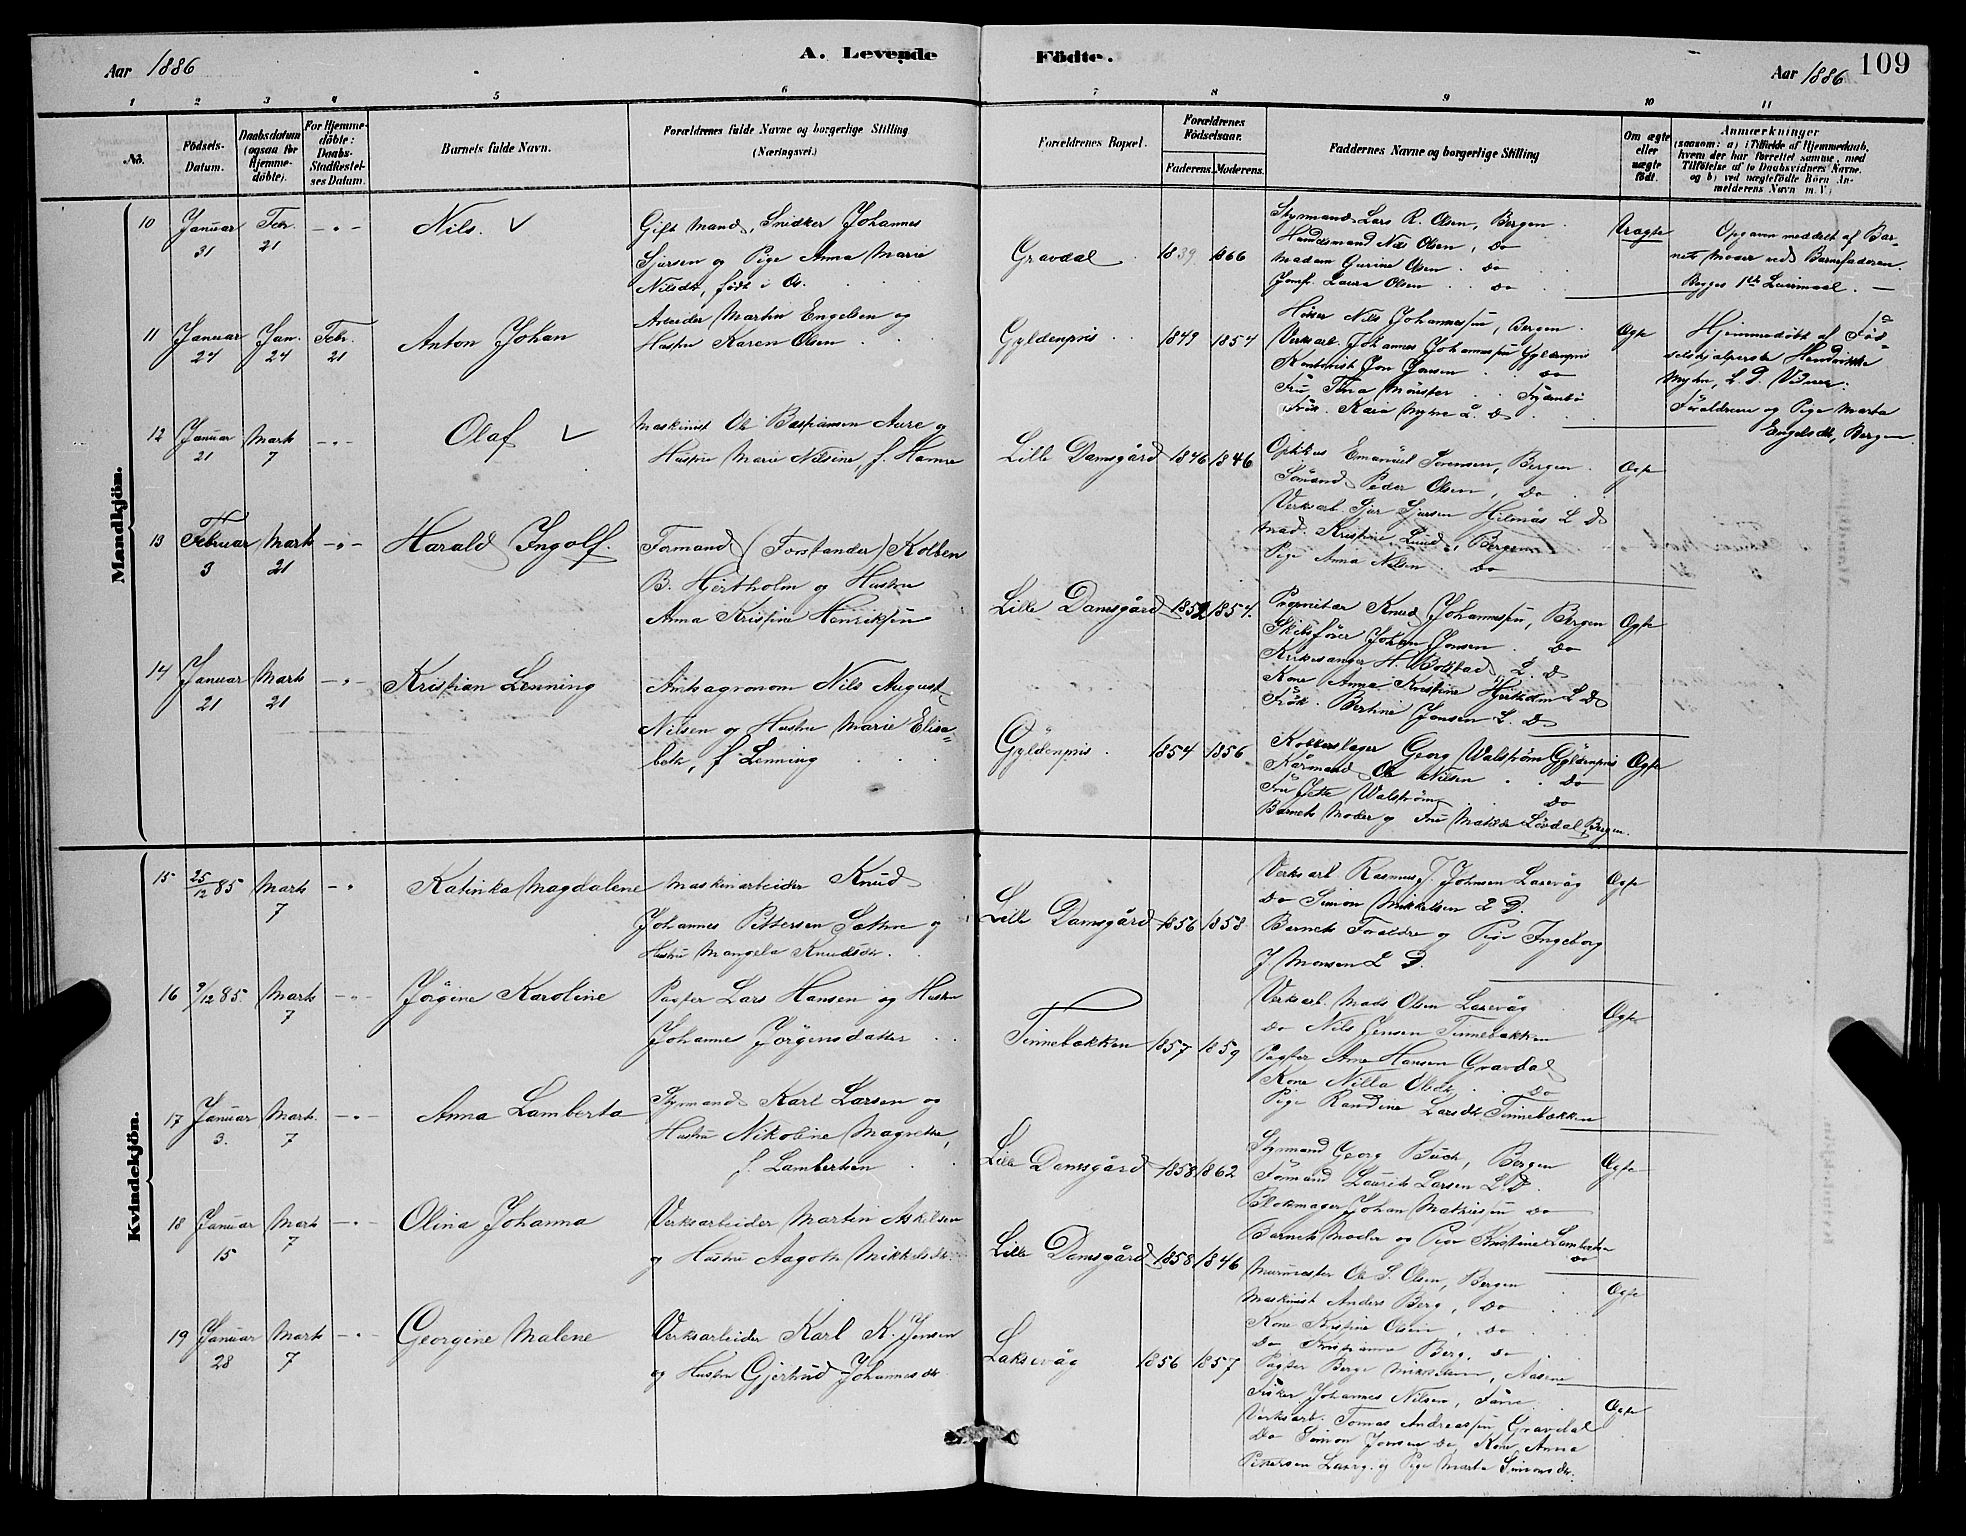 A. Levende Födte.
109
Aar 1886
Aar 1886
1 2 3 4 5 6 7 8 9 10 11
No.
Födsels-Datum.
Daabsdatum (ogsaa for Hjemme-döbte).
For Hjemme-döbte: Daabs-Stadfæstel-ses Datum.
Barnets fulde Navn.
Forældrenes fulde Navne og borgerlige Stilling (Næringsvei.)
Forældrenes Bopæl.
Forældrenes Födselsaar.
Faderens. Moderens.
Faddernes Navne og borgerlige Stilling
Om ægte eller uægte födt.
Anmærkninger
(saasom: a) i Tilfælde af Hjemmedaab, hvem der har forrettet samme, med Tilföielse af to Daabsvidners Navne, og b) ved uægtefödte Börn An-melderens Navn m. V.)
Mandkjön.
10 Januar 31 Febr. 21 -"- Nils. ✓
Gift Mand, Snidker Johannes
Sjursen og Pige Anna Marie
Nilsdtr, født i Os.
Gravdal 1839 1866
Styrmand Lars R. Olsen, Bergen
Handelsmand Nils Olsen, Do
Madam Gurine Olsen Do
Jomf. Laura Olsen Do
Uægte
Opgaven meddelt af Bar-
nets Moder ved Barnefaderen.
Begges 1ste Leiermaal. —
11 Januar 24 Jan. 24 Febr. 21 Anton Johan
Arbeider Martin Engelsen og
Hustru Karen Olsen
Gyldenpris 1849 1854
Høker Nils Johannessen, Bergen
Verksarb. Johannes Johannessen Gyldenpris
Kontorist Jon Jonsen Do
Fru Tina Mönster
Frøk. Kaia Myhre L. D
Ægte
Hjemmedøbt af Fød-
selshjælperske Hendrikke
Myhre, L. D. Vidner:
Forældrene og Pige Marta
Engelsdtr, Bergen
12 Januar 21 Marts 7 -"- Olaf ✓
Maskinist Ole Bastiansen Aure og
Hustru Marie Nilsine, f. Hamre
Lille Damsgård 1846 1846
Optikus Emanuel Sørensen, Bergen
Sömand Peder Olsen, Do
Verksarb. Sjur Sjursen Hjelmås L D
Mad. Kristine Lund, Bergen
Pige Anna Nilsen Do
Ægte
13 Februar 3 Marts 21 -"- Harald Ingolf.
Formand (Forstander) Kolben
B. Hjertholm og Hustru
Anna Kristine Henriksen
Lille Damsgård 1852 1854.
Proprietær Knud Johannessen, Bergen
Skibsfører Johan Jonsen Do
Kirkesanger H. Bolstad L. D
Kone Anna Kristine Hjertholm L D
Frøk. Bertine Jonsen L. D
Ægte
14 Januar 21 Marts 21 -"- Kristian Lenning
Amtsagronom Nils August
Nilsen og Hustru Marie Elisa-
beth, f Lenning
Gyldenpris. 1854 1856
Kobberslager Georg Walstrøm Gyldenpris
Kårmand Ole Nilsen Do
Fru Jette Walstrøm Do
Barnets Moder og Fru Matilde Lövdal, Bergen.
Ægte
Kvindekjön.
15 25/12 85 Marts 7 -" Katinka Magdalene
Maskinarbeider Knud
Johannes Pettersen Sættre og
Hustru Mangela Knudsdtr.
Lille Damsgård 1856 1858
Verksarb Rasmus J. Johnsen Laxevåg
Do Simon Mikkelsen L D.
Barnets Forældre og Pige Ingeborg
J. Monsen L D.
Ægte
16 9/12 85. Marts 7 -"- Jörgine Karoline
Pagter Lars Hansen og Hustru
Johanne Jörgensdatter
Tinnebækken 1857 1859
Verksarb. Mads Olsen Laxevåg
Do Nils Jensen Tinnebækken
Pagter Arne Hansen Gravdal
Kone Nilla Olsdtr Do
Pige Randine Larsdtr Tinnebækken
Ægte
17 Januar 3. Marts 7 -"- Anna Lamberta
Styrmand Karl Larsen og
Hustru Nikoline Magrethe,
f. Lambertsen
Lille Damsgård 1858 1862
Styrmand Georg Buch, Bergen
Formand Laurits Larsen L. D.
Blokmager Johan Mathisen Do
Barnets Moder og Pige Kristine Lambertsen Do
Ægte
18 Januar 15 Marts 7 -"- Olina Johanna
Verksarbeider Martin Askelsen
og Hustru Aagothe Mikkelsdtr.
Lille Damsgård 1858 1846
Murmester Ole S. Olsen, Bergen
Maskinist Anders Berg, Do
Kone Kristine Olsen, Do
Do Kristianna Berg, Do
Pagter Berge Mikkelsen, Aasene
Ægte
19 Januar 28 Marts 7 -"- Georgine Malene
Verksarbeider Karl K. Jensen
og Hustru Gjertrud Johannesdtr
Laksevåg 1856 1857
Fisker Johannes Nilsen,
Verksarb. Tomas Andreassen Gravdal
Do Simon Jonsen Do, Kone Anna
Pettersen Laxvg. og Pige Marta Simonsdtr.
Ægte